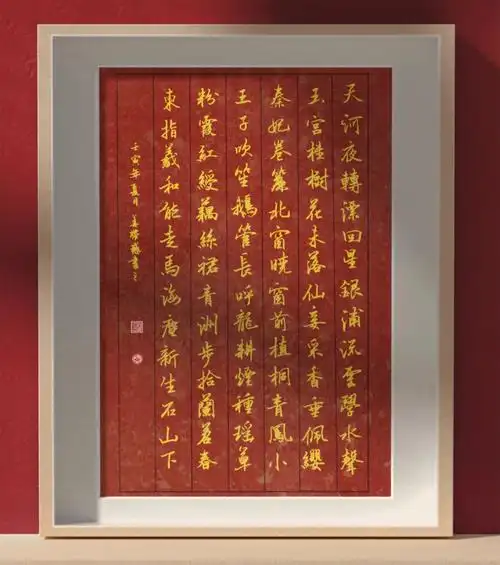 天河夜轉漂回星銀浦流雲學水聲
玉宮桂樹花未落仙妾采香垂佩纓
秦妃卷簾北窗曉窗前植桐青鳳小
王子吹笙鵝管長呼龍耕煙種瑤草
粉霞紅綬藕絲裙青洲步拾蘭苕春
東指羲和能走馬海塵新生石山下
壬寅年夏月姜書之